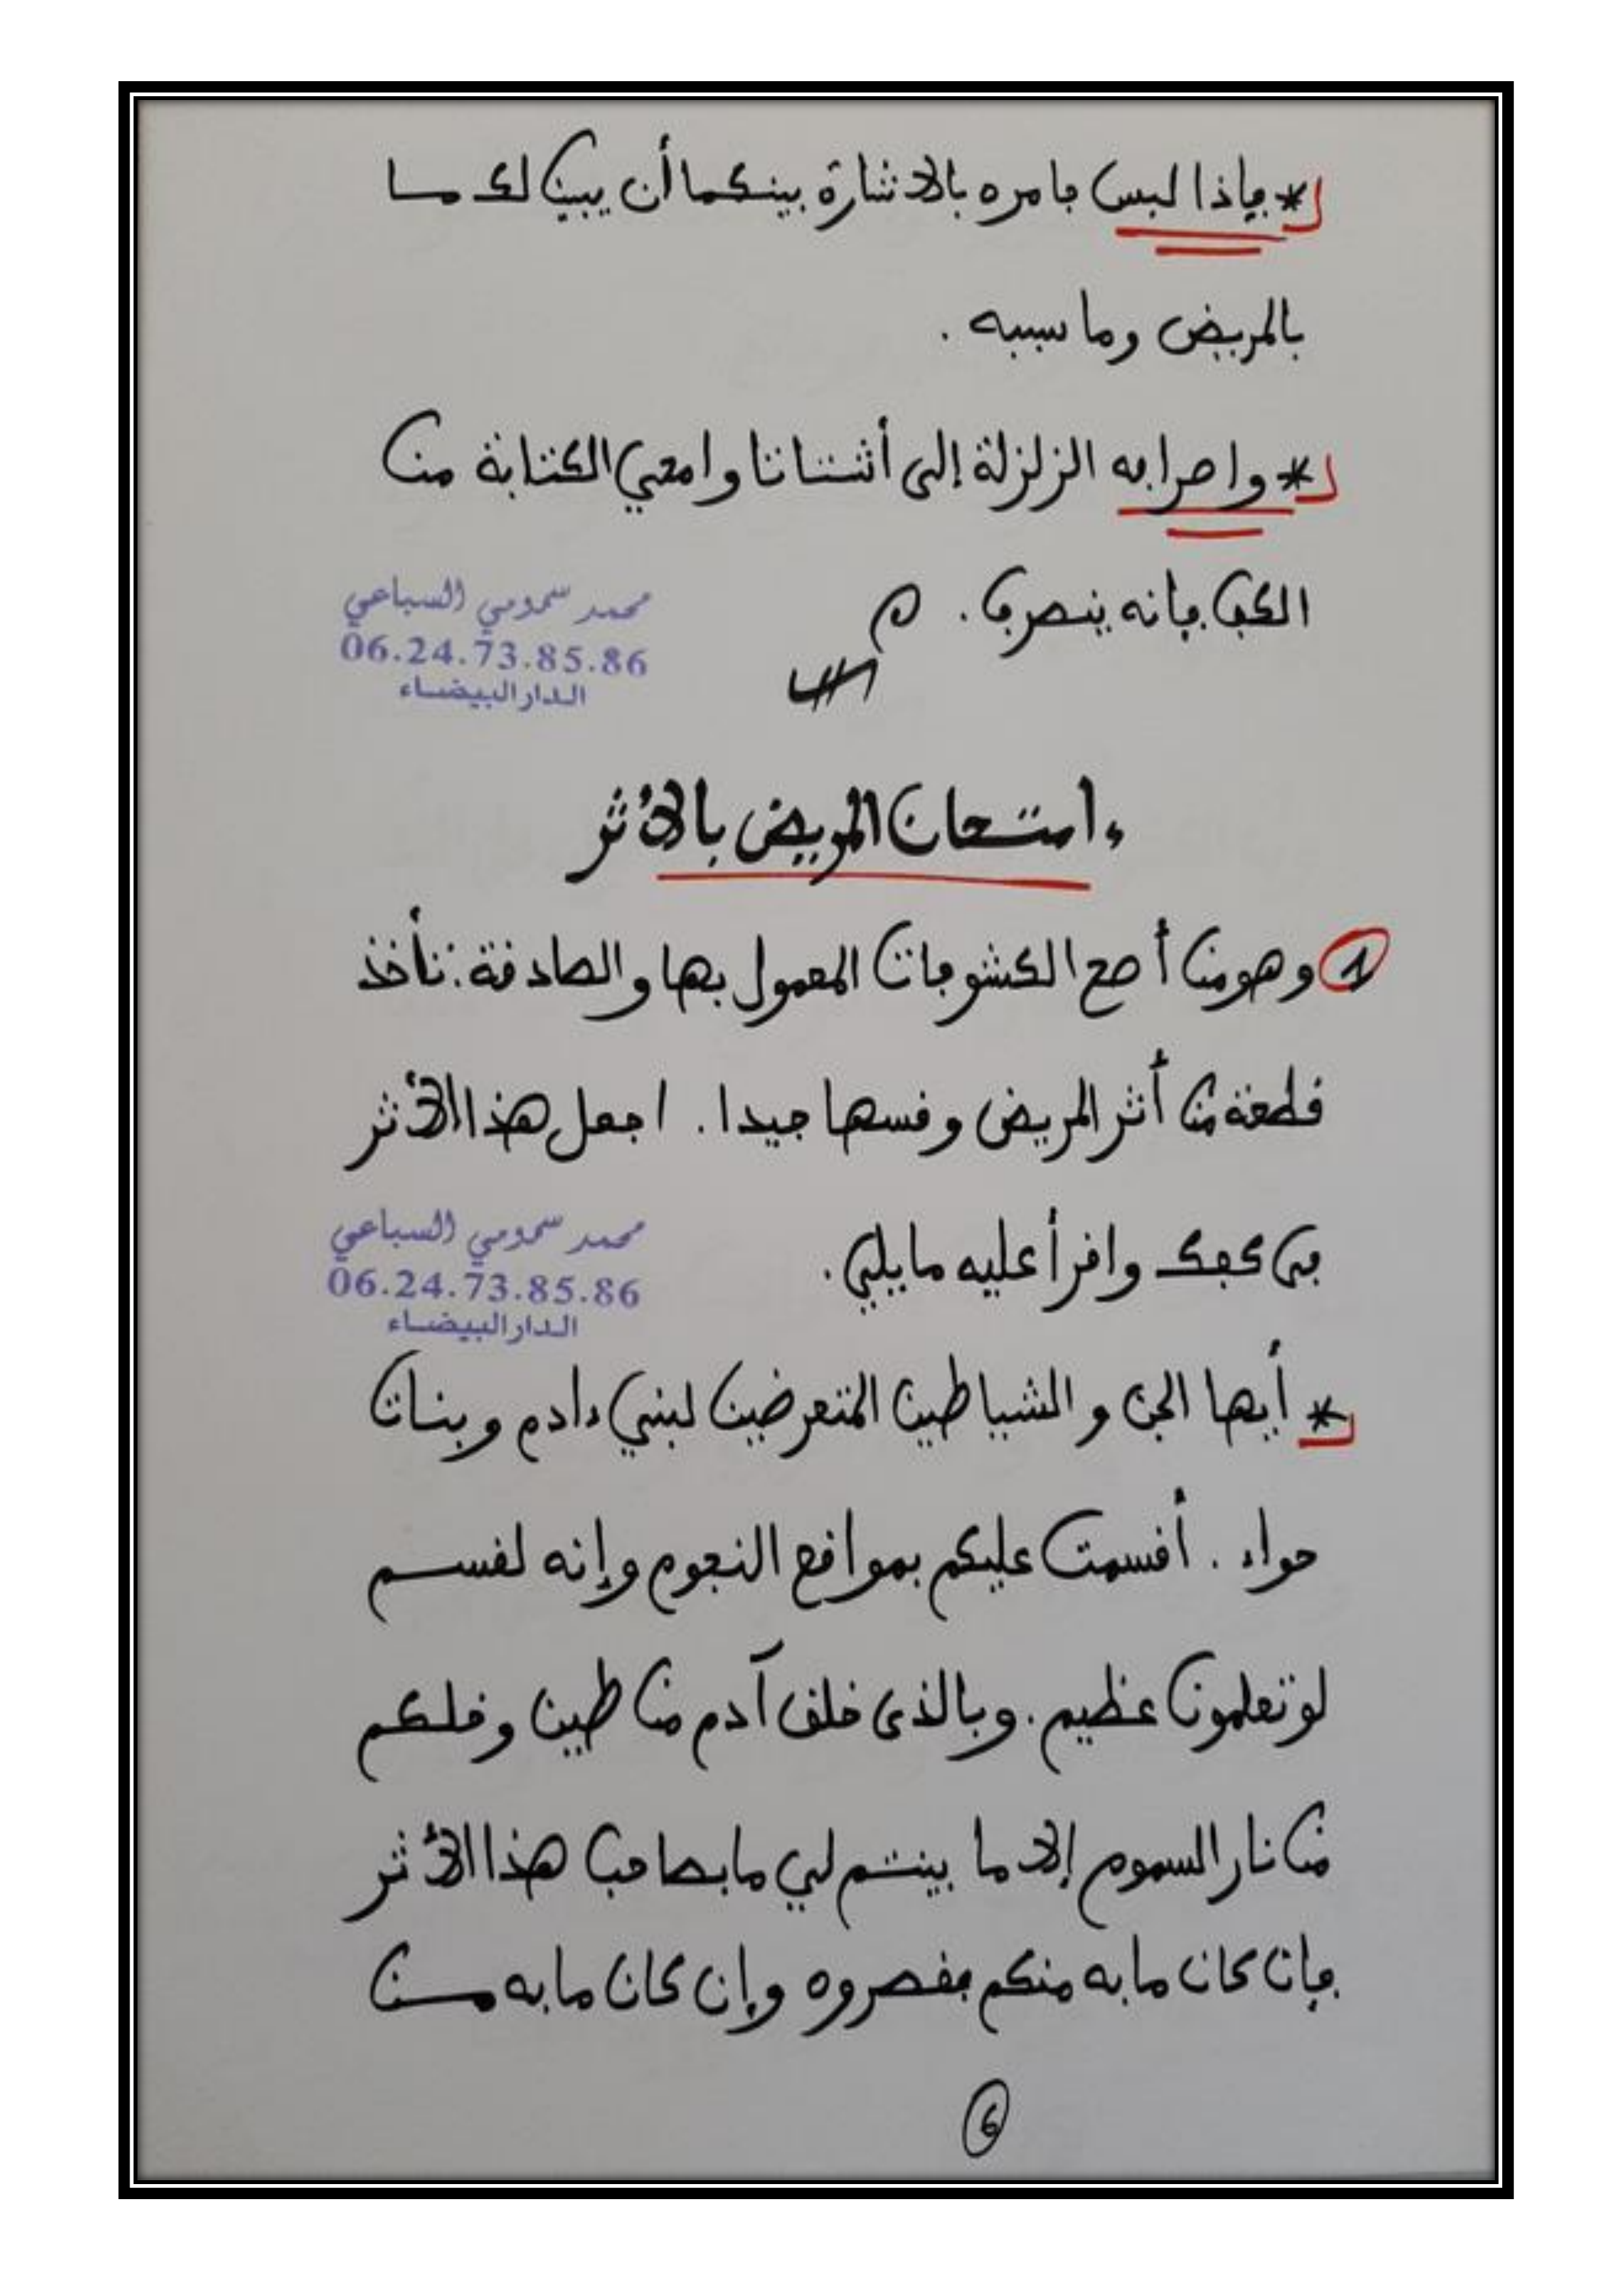 * فإذا لبس فامره بالاشارة بينكما أن يبين لك ما
بالمريض وما سببه .
* واصرافه الزلزلة إلى أشتاتا وامحي الكتابة من
الكف فإنه ينصرف .
محمد سمومي السباعي
06.24.73.85.86
الدار البيضاء
ءامتحان المريض بالأثر
1 وهو من أصح الكشوفات المعمول بها والصادقة: تأخذ
قطعة من أثر المريض وقسها جيدا . اجعل هذا الأثر
في كفك واقرأ عليه مايلي .
محمد سمومي السباعي
06.24.73.85.86
الدار البيضاء
* أيها الجن والشياطين المتعرضين لبني ءادم وبنات
حواء . أقسمت عليكم بمواقع النجوم وإنه لقسم
لو تعلمون عظيم . وبالذي خلق آدم من طين وخلقكم
من نار السموم إلا ما بينتم لي ما بصاحب هذا الأثر
فإن كان ما به منكم فقصروه وإن كان ما به من
6